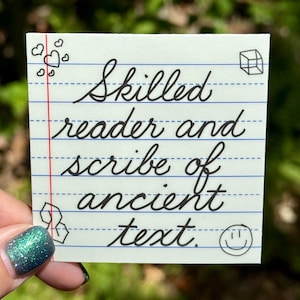 Skilled
reader and
scribe of
ancient
text.